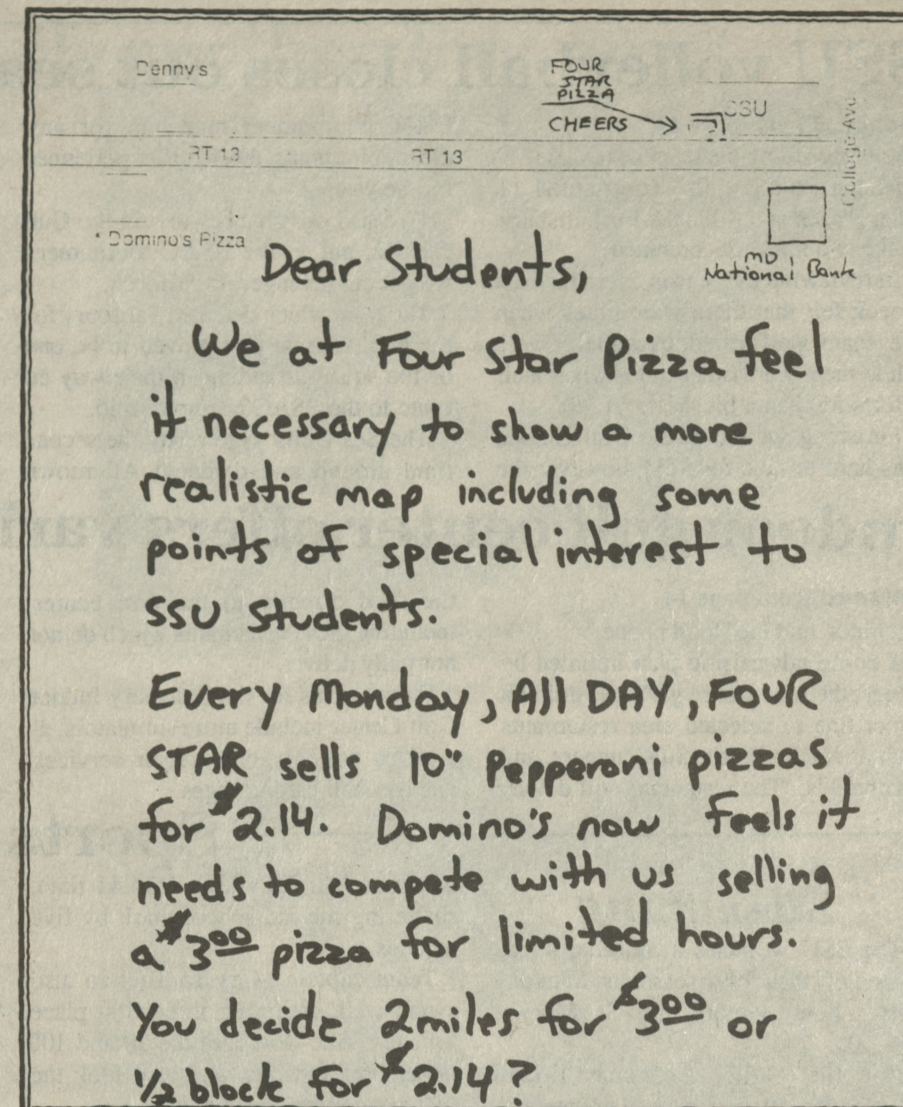 Denny's
FOUR
STAR
PIZZA
CHEERS
SSU
College Ave
RT 13
RT 13
Domino's Pizza
MD
National Bank
Dear Students,
We at Four Star Pizza feel
it necessary to show a more
realistic map including some
points of special interest to
SSU Students.
Every Monday, All DAY, FOUR
STAR sells 10" Pepperoni pizzas
for $2.14. Domino's now feels it
needs to compete with us selling
a $300 pizza for limited hours.
You decide 2miles for $300 or
1/2 block for $2.14?